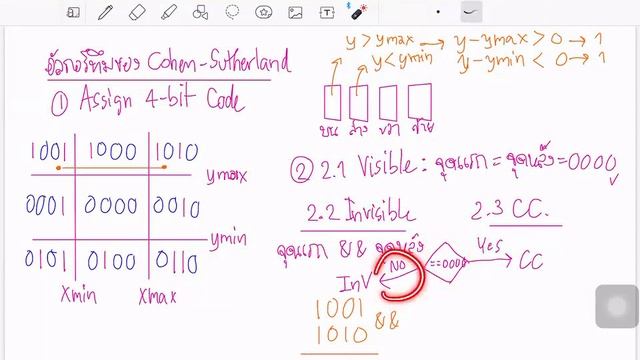 y > ymax → y-ymax > 0 → 1
y < ymin y-ymin < 0 → 1
อัลกอริทึมของ Cohen-Sutherland
① Assign 4-bit Code
บน ล่าง ขวา ซ้าย
1001 1000 1010
ymax
0001 0000 0010
ymin
0101 0100 0110
xmin xmax
② 2.1 Visible: จุดแรก = จุดหลัง = 0000 ✓
2.2 Invisible 2.3 CC.
จุดแรก && จุดหลัง
==0000 Yes → CC
NO
InV
1001
1010 &&